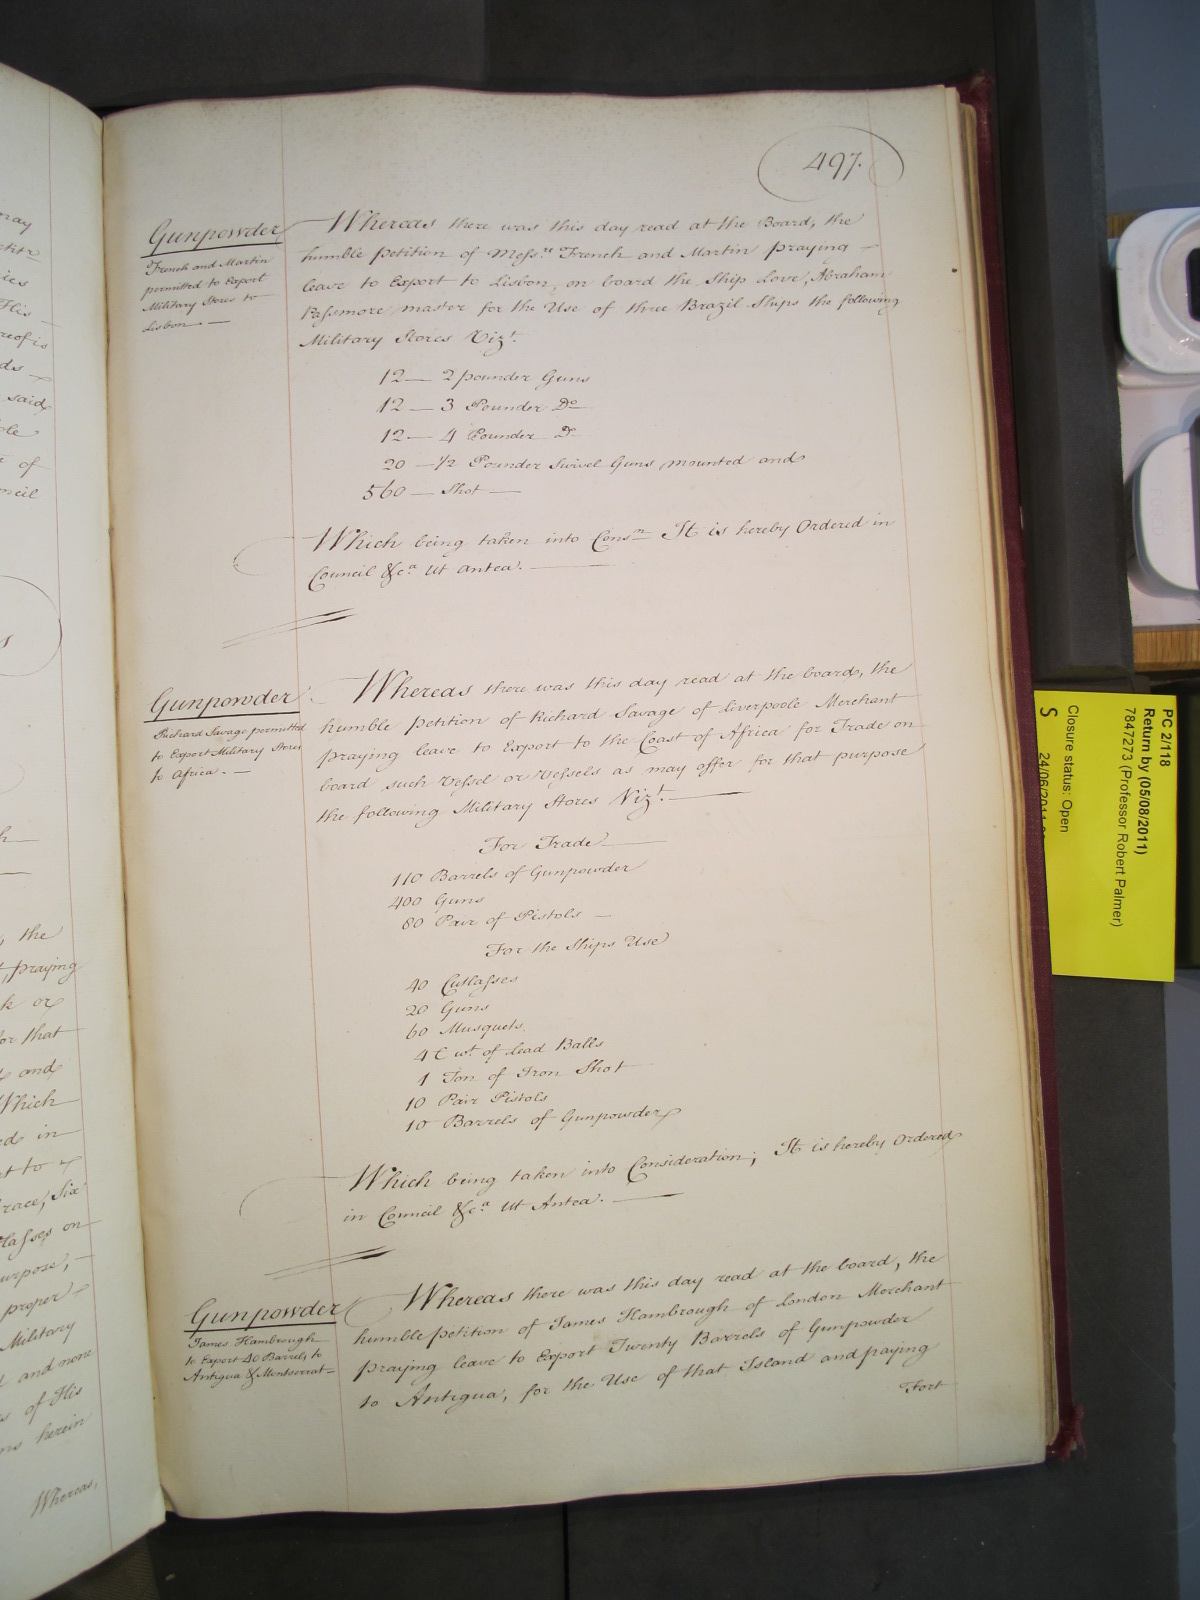 497.
Gunpowder
French and Martin
permitted to Export
Military Stores to
Lisbon. —
Whereas there was this day read at the Board, the
humble Petition of Mess.rs French and Martin praying —
leave to Export to Lisbon, on board the Ship Love, Abraham
Passmore, master for the Use of three Brazil Ships the following
Military Stores Vizt.
12 — 2 pounder Guns
12 — 3 Pounder Do
12 — 4 Pounder Do
20 — 1/2 Pounder Swivel Guns, mounted and
560 — Shot —
Which being taken into Consn. It is hereby Ordered in
Council &ca. Ut antea. —
Gunpowder
Richard Savage permitted
to Export Military Stores
to Africa. —
Whereas there was this day read at the board, the
humble Petition of Richard Savage of Liverpoole Merchant
praying leave to Export to the Coast of Africa for Trade on
board such Vessel or Vessels as may offer for that purpose
the following Military Stores Vizt. —
For Trade —
110 Barrels of Gunpowder
400 Guns
80 Pair of Pistols —
For the Ships Use
40 Cutlasses
20 Guns
60 Musquets.
4 C wt. of Lead Balls
1 Ton of Iron Shot
10 Pair Pistols
10 Barrels of Gunpowder
Which being taken into Consideration; It is hereby Ordered
in Council &ca. Ut Antea. —
Gunpowder
James Hambrough
to Export 40 Barrels to
Antigua & Montserrat —
Whereas there was this day read at the board, the
humble petition of James Hambrough of London Merchant
praying leave to Export Twenty Barrels of Gunpowder
to Antigua, for the Use of that Island and paying
Fort
said
of
the
praying
or
for that
and
Which
in
to
Six
on
purpose, —
proper —
Military
and none
of His
herein
Whereas,
PC 2/118
Return by (05/08/2011)
7847273 (Professor Robert Palmer)
Closure status: Open
S